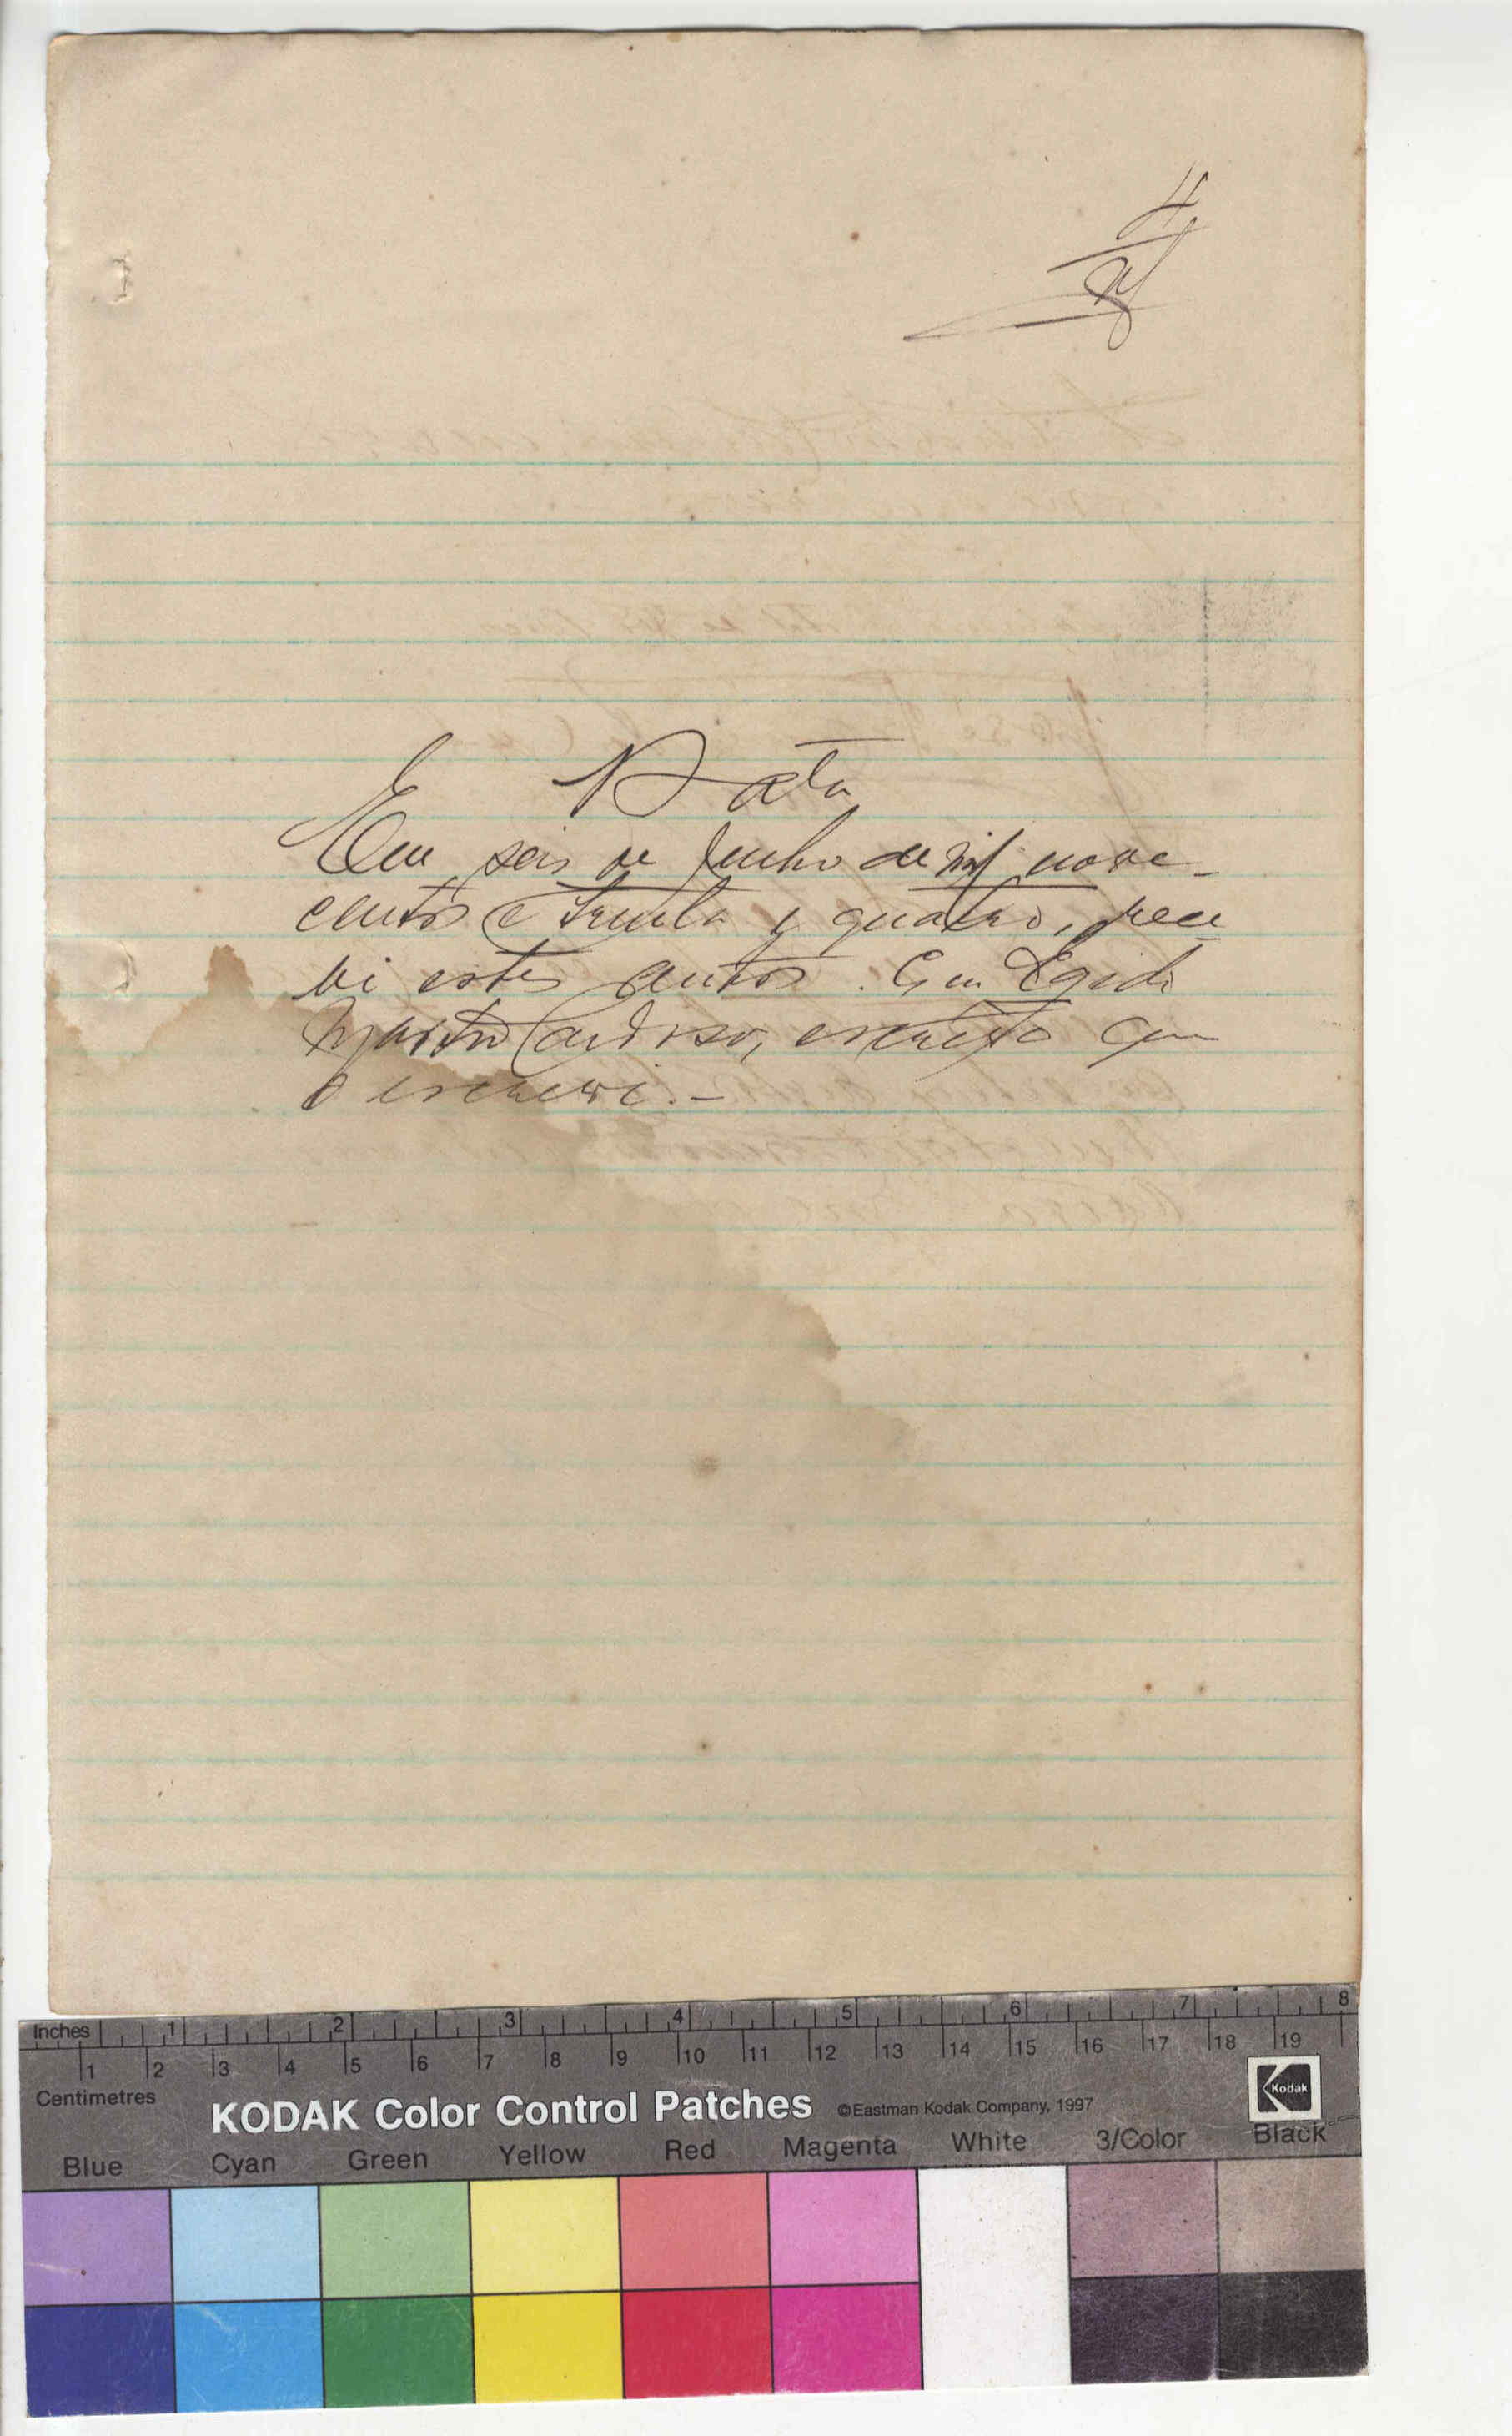 4
Data
Em seis de Junho de mil nove-
centos e trinta y quatro, rece
bi estes autos. Eu Egidi
Cardoso, escrivão que
o escrevi.-
Inches 1 2 3 4 5 6 7 8
1 2 3 4 5 6 7 8 9 10 11 12 13 14 15 16 17 18 19
Centimetres
KODAK Color Control Patches ©Eastman Kodak Company, 1997 Kodak
Blue Cyan Green Yellow Red Magenta White 3/Color Black